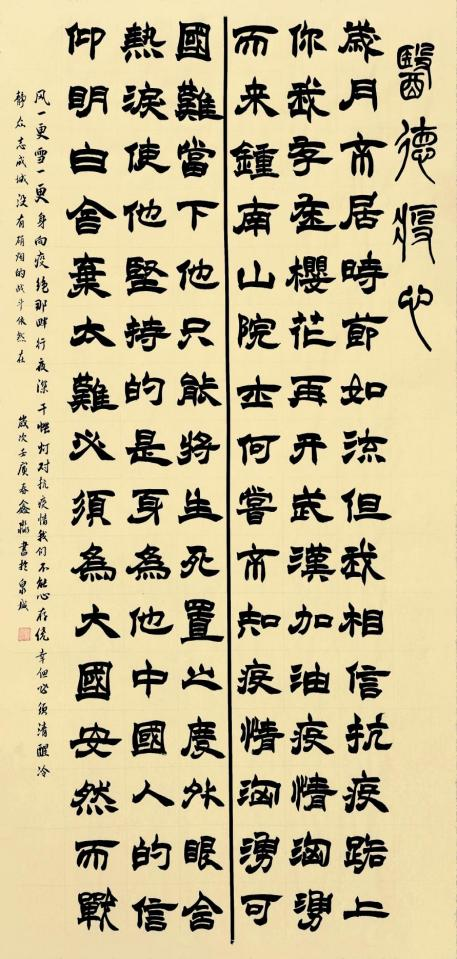 醫德疫心
歲月不居時節如流但我相信抗疫路上
你我櫻花再开武漢加油疫情洶湧
而来鍾南山院士何嘗不知疫情洶湧可
國難當下他只能將生死置之度外眼含
熱淚使他堅持的是身為他中國人的信
仰明白舍棄太難必須為大國安然而戰
风一更雪一更身向疫绝那畔行夜深千帐灯对抗疫情我们不能心存侥幸但必须清醒冷
静众志成城没有硝烟的战斗依然在 歲次壬寅春鑫書於泉城